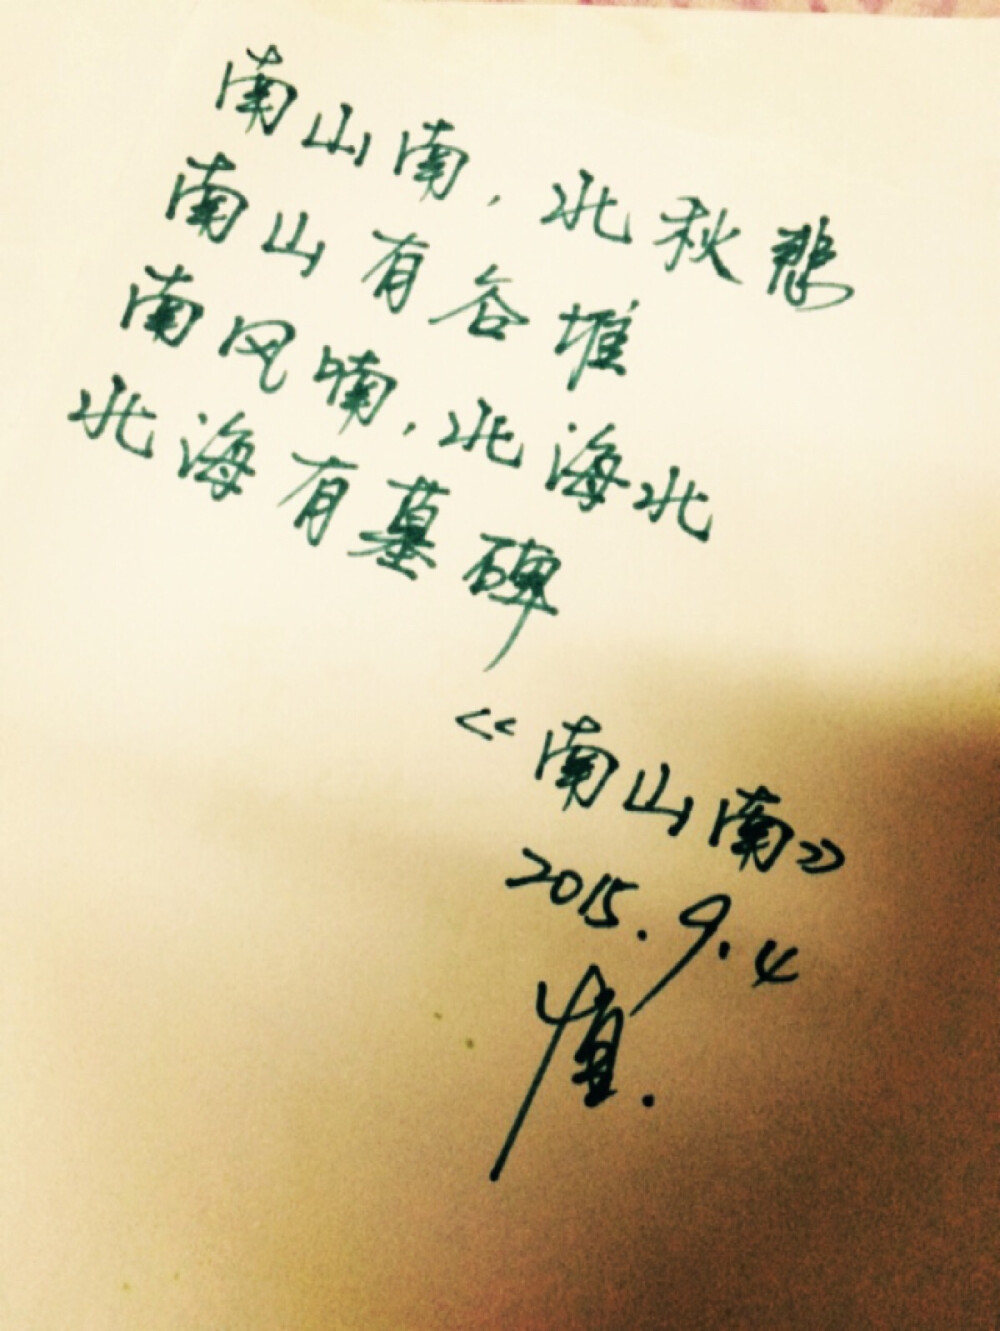 南山南,北秋悲
南山有谷堆
南风喃,北海北
北海有墓碑
《南山南》
2015.9.4